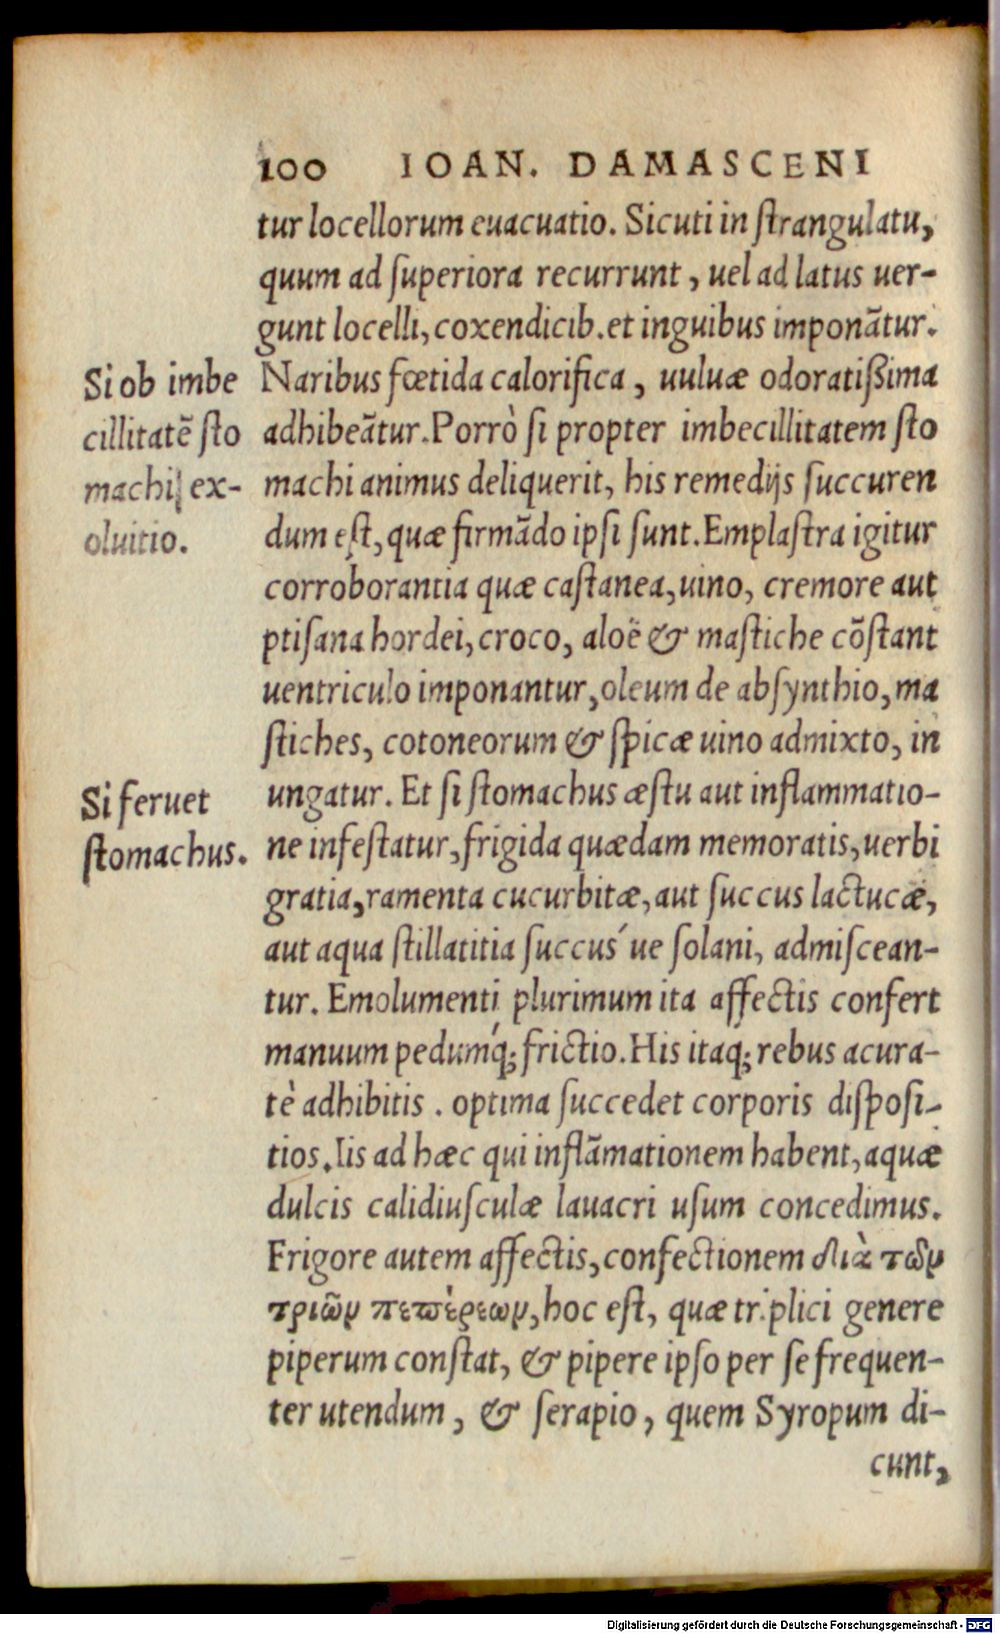 100 IOAN. DAMASCENI
tur locellorum euacuatio. Sicuti in ſtrangulatu,
quum ad ſuperiora recurrunt, uel ad latus uer-
gunt locelli, coxendicib. et inguibus imponãtur.
Naribus fœtida calorifica, uuluæ odoratiſsima
adhibeãtur. Porrò ſi propter imbecillitatem ſto
machi animus deliquerit, his remedijs ſuccuren
dum eſt, quæ firmãdo ipſi ſunt. Emplaſtra igitur
corroborantia quæ caſtanea, uino, cremore aut
ptiſana hordei, croco, aloë & maſtiche cõſtant
uentriculo imponantur, oleum de abſynthio, ma
ſtiches, cotoneorum & ſpicæ uino admixto, in
ungatur. Et ſi ſtomachus æſtu aut inflammatio-
ne infeſtatur, frigida quædam memoratis, uerbi
gratia, ramenta cucurbitæ, aut ſuccus lactucæ,
aut aqua ſtillatitia ſuccus´ue ſolani, admiſcean-
tur. Emolumenti plurimum ita affectis confert
manuum pedumq́; frictio. His itaq; rebus acura-
tè adhibitis. optima ſuccedet corporis diſpoſi-
tios. Iis ad hæc qui inflãmationem habent, aquæ
dulcis calidiuſculæ lauacri uſum concedimus.
Frigore autem affectis, confectionem διὰ τῶν
τριῶν πεπέρεων, hoc eſt, quæ triplici genere
piperum conſtat, & pipere ipſo per ſe frequen-
ter utendum, & ſerapio, quem Syropum di-
cunt,
Si ob imbe
cillitatẽ ſto
machi ex-
oluitio.
Si feruet
ſtomachus.
Digitalisierung gefördert durch die Deutsche Forschungsgemeinschaft - DFG